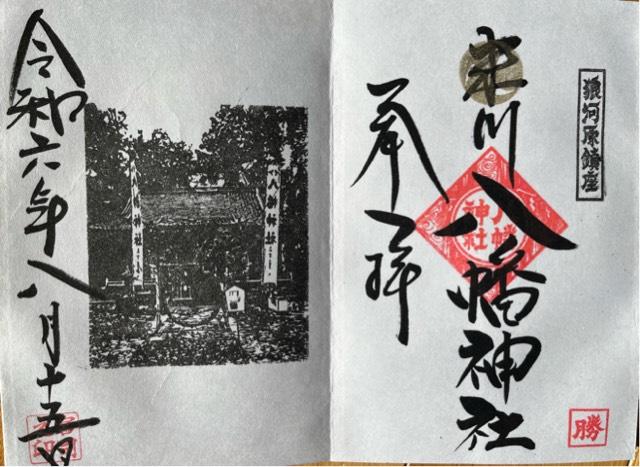 狼河原鎮座
米川八幡神社
奉拝
八幡
神社
勝
八幡神社
八幡神社
令和六年八月十五日